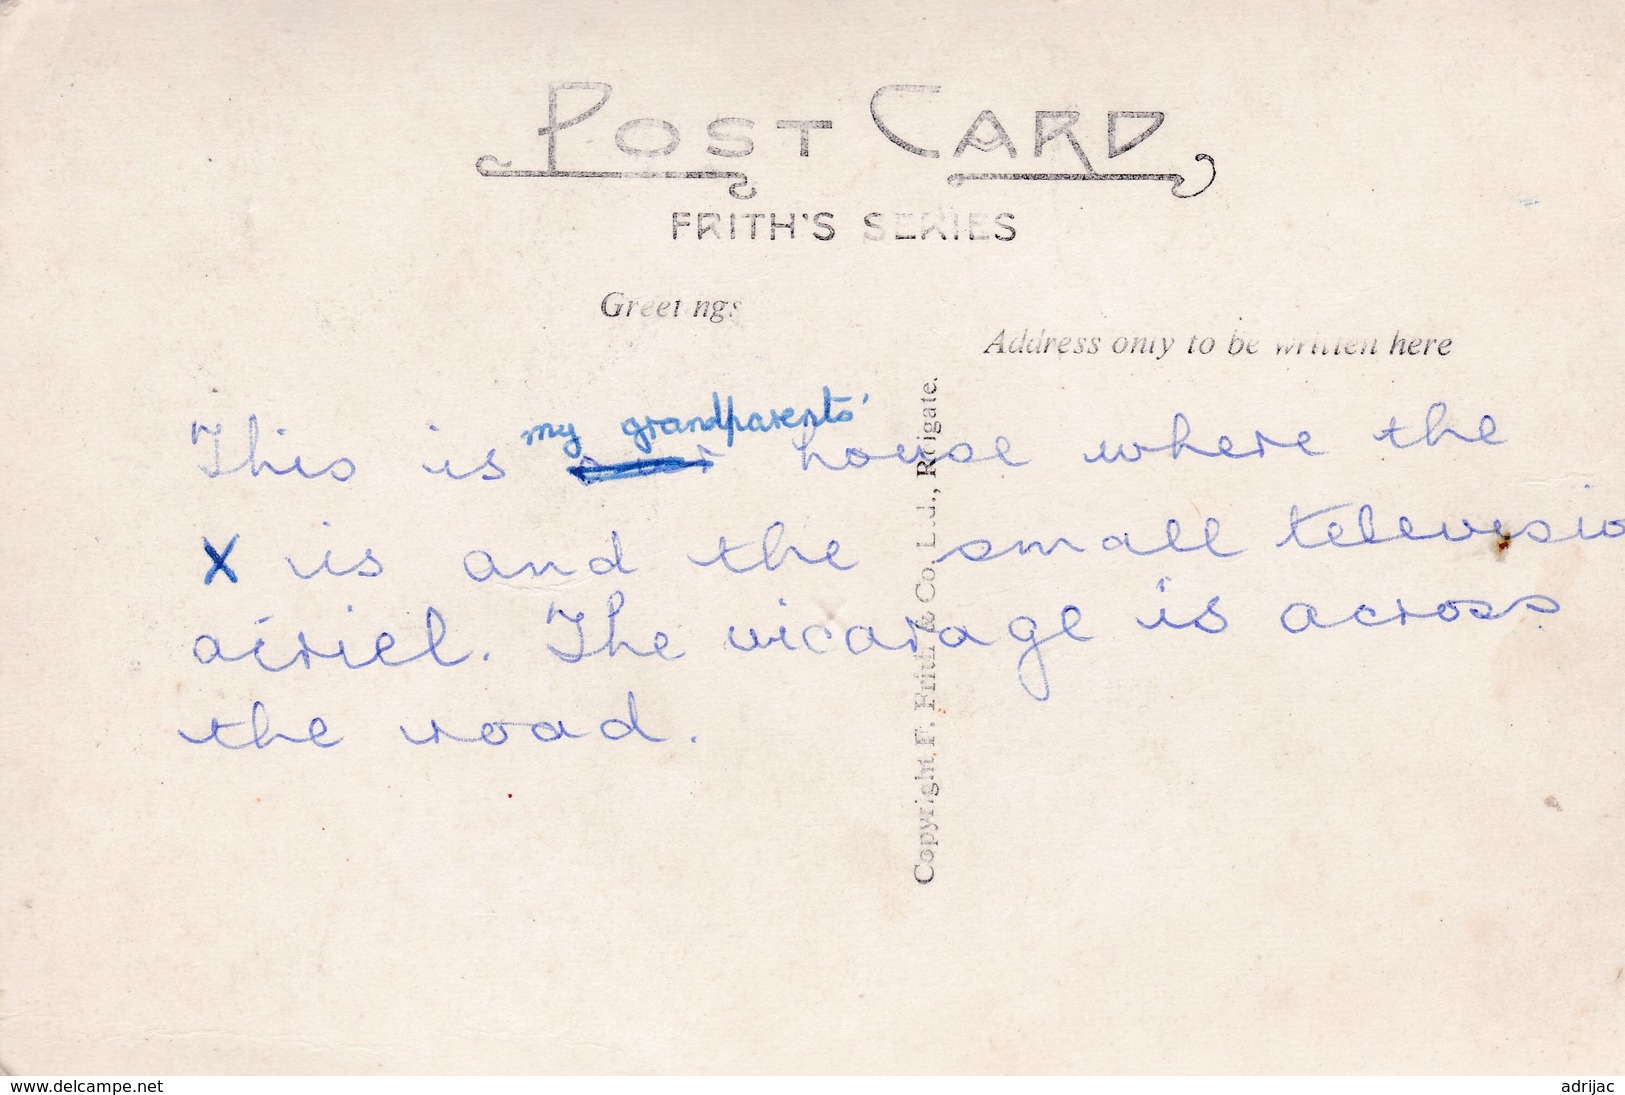 POST CARD
FRITH'S SERIES
Greetings
Address only to be written here
my grandparents'
This is house where the
X is and the small televisio
aíriel. The vicarage is across
the road.
Copyright F. Frith & Co. Ltd., Reigate.
www.delcampe.net
adrijac